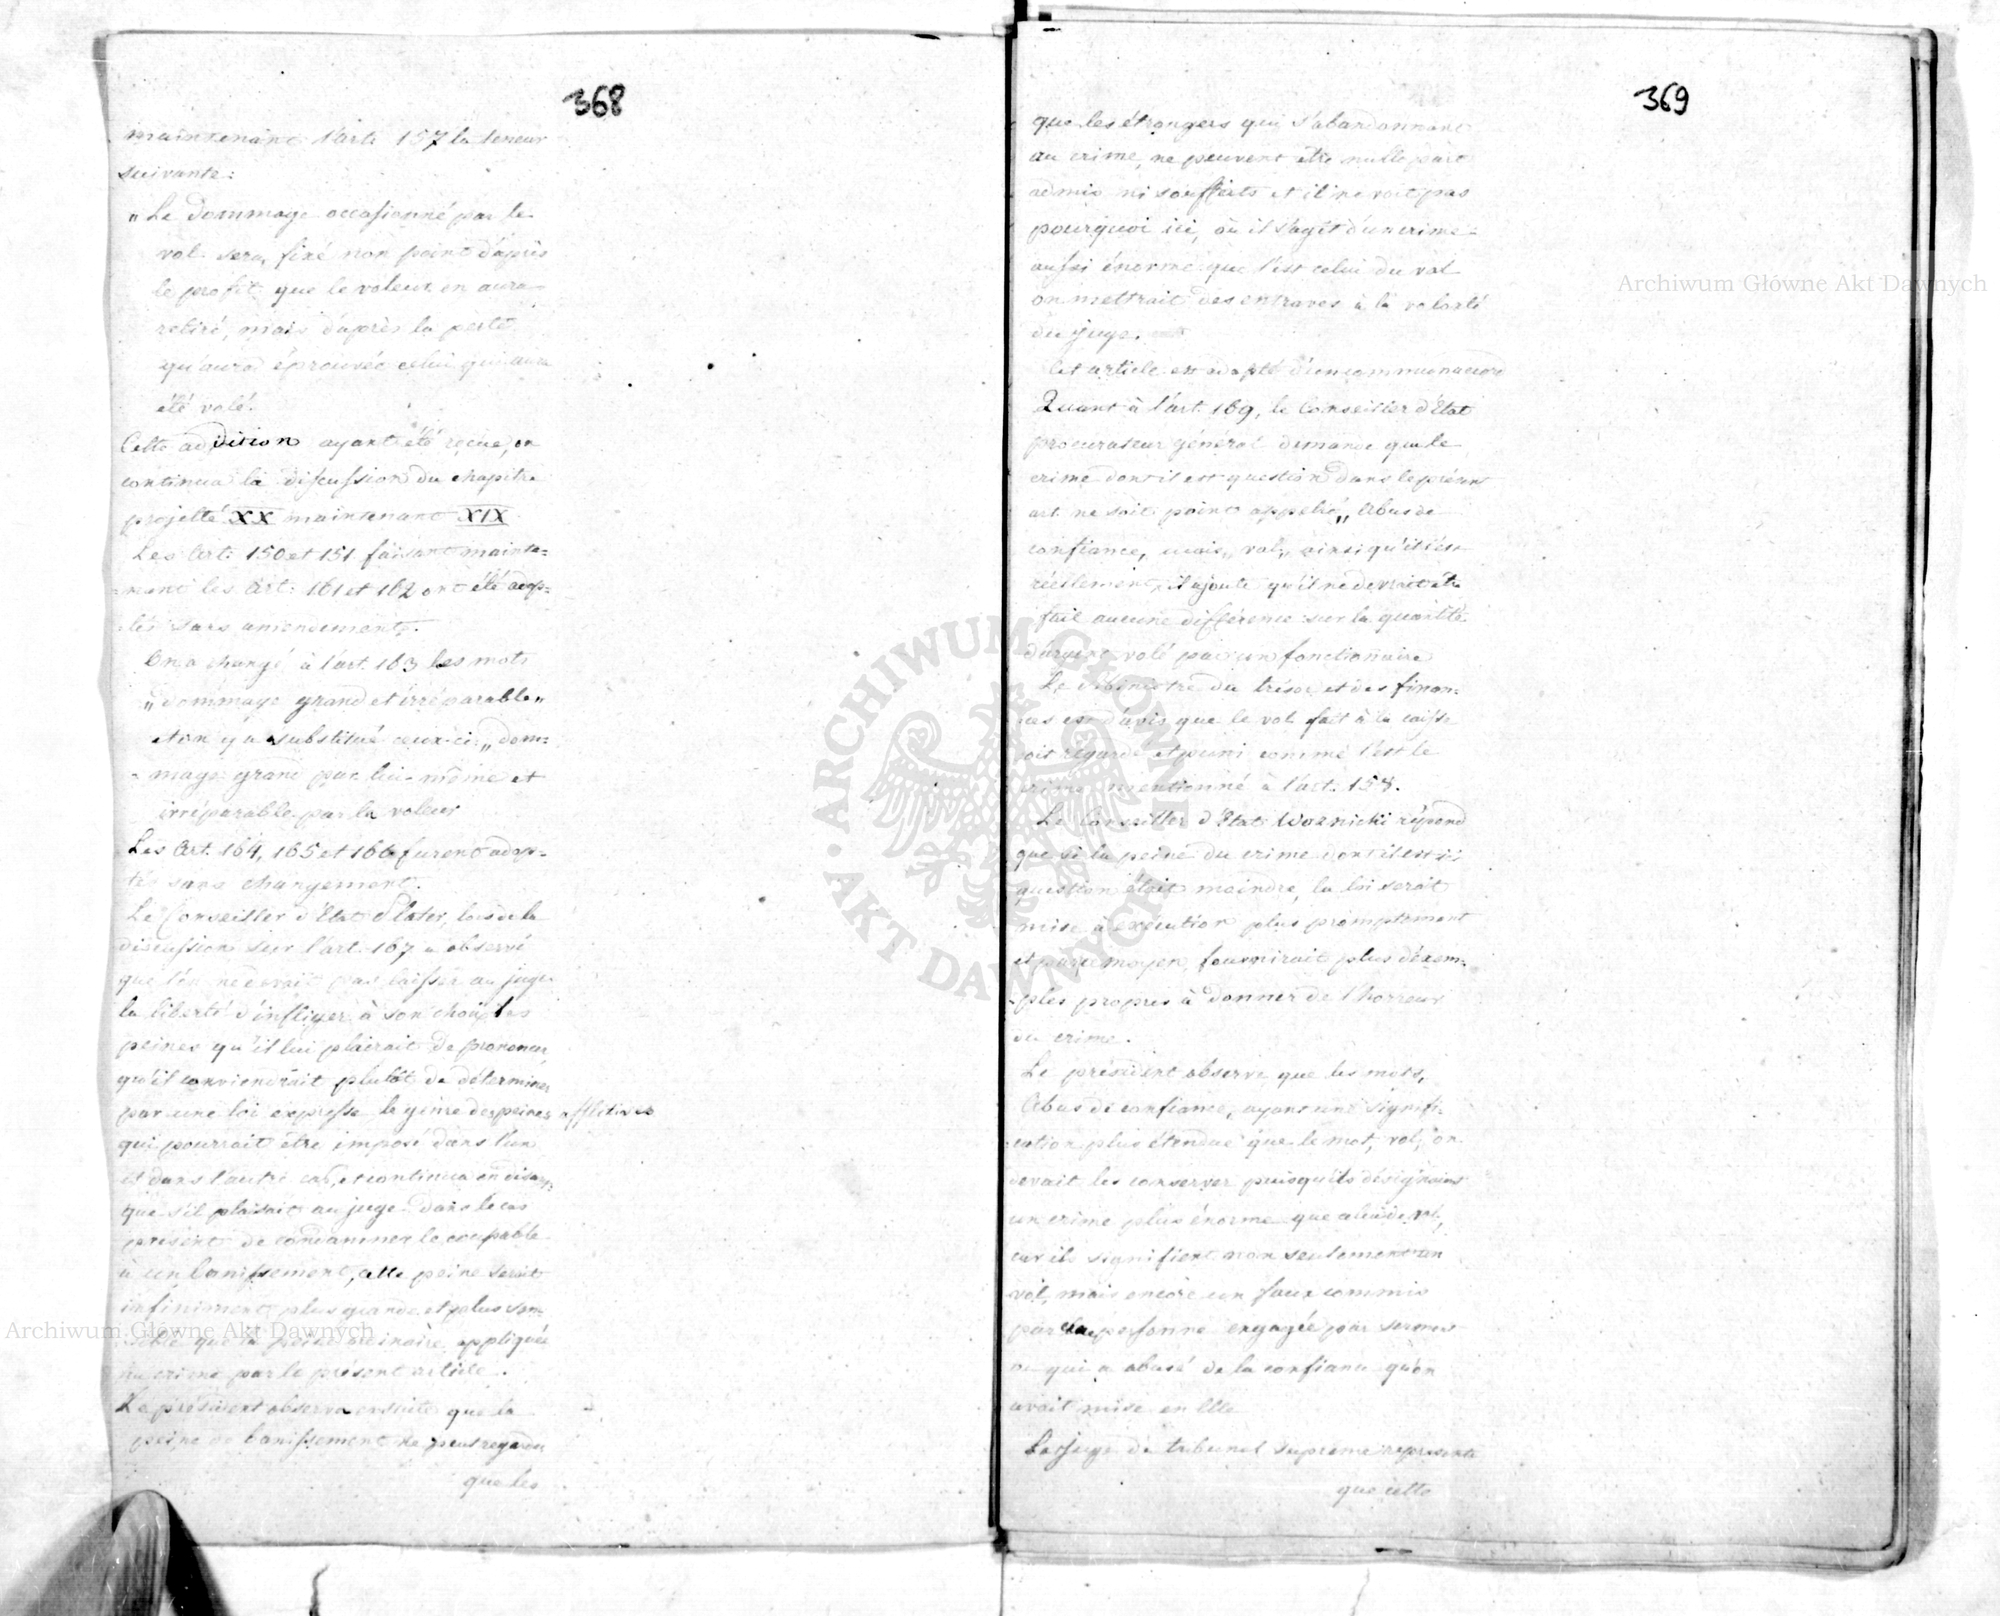 368
maintenant l'art. 157 la teneur
suivante:
„Le dommage occasionné par le
vol sera, fixé non point d'après
le profit que le voleur en aura
retiré, mais d'après la perte
qu'aura éprouvée celui qui aura
été volé.
Cette addition ayant été reçue, on
continua la discussion du chapitre
projetté XX maintenant XIX.
Les Art: 150 et 151 faisant mainte=
=nant les Art: 161 et 162 ont été adop=
=tés sans amendement.
On a changé à l'art. 163 les mots
„dommage grand et irréparable„
et on y a substitué ceux-ci „dom=
=mage grand par lui-même et
irréparable par le voleur
Les Art. 164, 165 et 166 furent adop=
tés sans changement.
Le Conseiller d'Etat Plater, lors de la
discussion sur l'art. 167 a observé
que l'on ne devait pas laisser au juge
la liberté d'infliger à son choix les
peines qu'il lui plairait de prononcer,
qu'il conviendrait plutôt de déterminer
par une loi expresse le genre des peines afflictives
qui pourrait être imposé dans l'un
et dans l'autre cas, et continua en disant,
que s'il plaisait au juge dans le cas
présent de condamner le coupable
à un banissement, cette peine serait
infiniment plus grande et plus sen=
=sible que la peine ordinaire, appliquée
au crime par le présent article.
Le président observa ensuite que la
peine de banissement ne peut regarder
que les
369
que les étrangers qui s'abandonnant
au crime, ne peuvent être nulle part
admis ni soufferts et il ne voit pas
pourquoi ici, où il s'agit d'un crime
aussi énorme que l'est celui du vol
on mettrait des entraves à la volonté
du juge.
Cet article est adopté d'un commun accord
Quant à l'art. 169, le Conseiller d'Etat
procurateur général demande que le
crime dont il est question dans le présent
art. ne soit point appelé „Abus de
confiance, mais „vol„ ainsi qu'il l'est
réellement, il ajoute qu'il ne devrait être
fait aucune différence sur la quantité
d'argent volé par un fonctionnaire
Le Ministre du trésor et des finan=
ces est d'avis que le vol fait à la caisse
soit regardé et puni comme l'est le
crime mentionné à l'art. 158.
Le Conseiller d'Etat Woznicki répond
que si la peine du crime dont il est ici
question était moindre, la loi serait
mise à exécution plus promptement
et par ce moyen fournirait plus d'exem=
=ples propres à donner de l'horreur
du crime.
Le président observe que les mots,
Abus de confiance, ayant une signifi=
cation plus étendue que le mot, vol, on
devait les conserver puisqu'ils désignaient
un crime plus énorme que celui de vol,
car ils signifient non seulement un
vol, mais encore un faux commis
par personne engagée par serment
qui a abusé de la confiance qu'on
avait mise en elle
Le juge du tribunal suprême représente
que cette
Archiwum Główne Akt Dawnych
Archiwum Główne Akt Dawnych
ARCHIWUM GŁÓWNE AKT DAWNYCH